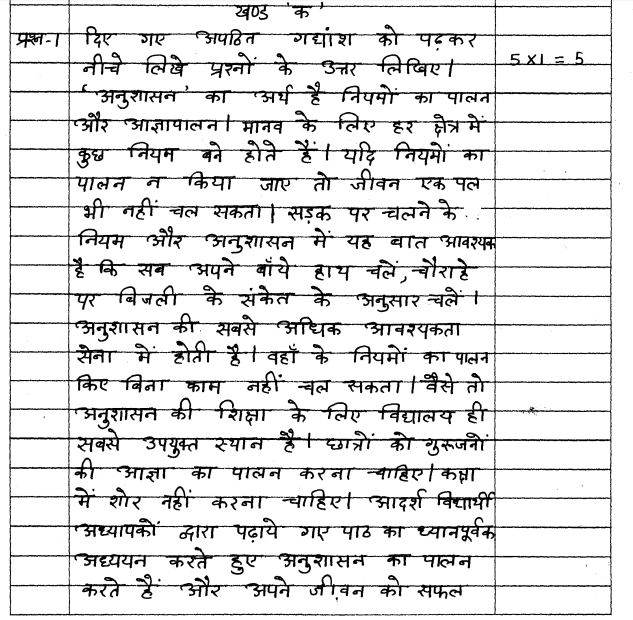 खण्ड 'क'
प्रश्न-1 दिए गए अपठित गद्यांश को पढ़कर
नीचे लिखे प्रश्नों के उत्तर लिखिए। 5 x 1 = 5
'अनुशासन' का अर्थ है नियमों का पालन
और आज्ञापालन। मानव के लिए हर क्षेत्र में
कुछ नियम बने होते हैं। यदि नियमों का
पालन न किया जाए तो जीवन एक पल
भी नहीं चल सकता। सड़क पर चलने के..
नियम और अनुशासन में यह बात आवश्यक
है कि सब अपने बाँये हाथ चलें, चौराहे
पर बिजली के संकेत के अनुसार चलें।
अनुशासन की सबसे अधिक आवश्यकता
सेना में होती है। वहाँ के नियमों का पालन
किए बिना काम नहीं चल सकता। वैसे तो
अनुशासन की शिक्षा के लिए विद्यालय ही
सबसे उपयुक्त स्थान है। छात्रों को गुरूजनों
की आज्ञा का पालन करना चाहिए। कक्षा
में शोर नहीं करना चाहिए। आदर्श विद्यार्थी
अध्यापकों द्वारा पढ़ाये गए पाठ का ध्यानपूर्वक
अध्ययन करते हुए अनुशासन का पालन
करते हैं और अपने जीवन को सफल